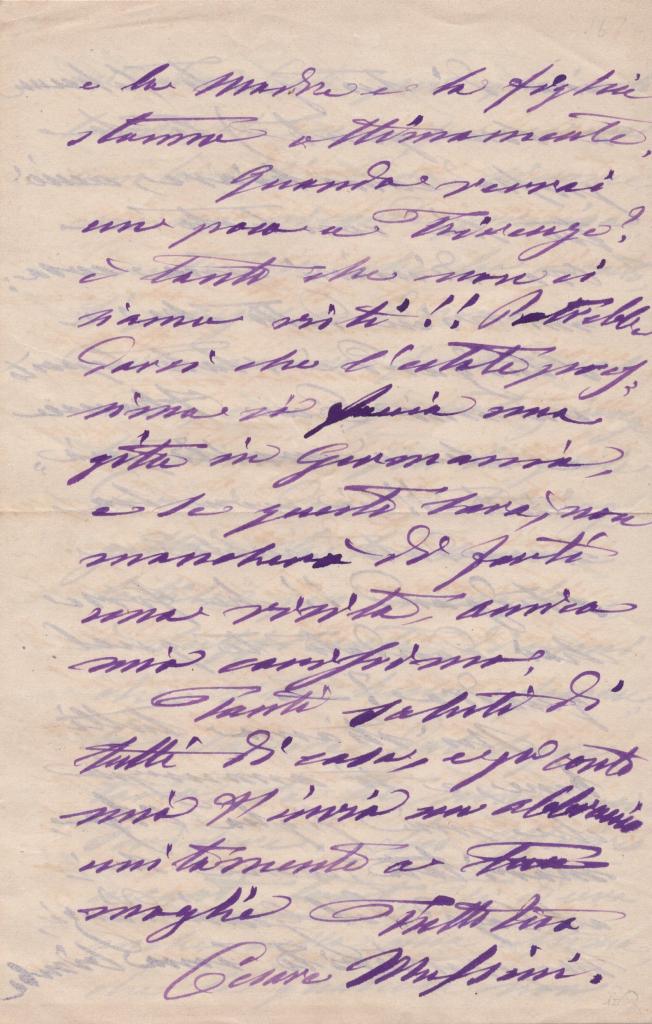 e la Madre e la figlia
stanno ottimamente.
Quando verrai
un poco a Firenze?
è tanto che non ci
siamo visti!! Potrebbe
darsi che l'estate pros-
sima si faccia una
gita in Germania,
e se questo sarà, non
mancherò di farti
una visita, amico
mio carissimo.
Tanti saluti di
tutti di casa, e per conto
mio t'invio un abbraccio
unitamente a Tua
moglie Tutto tuo
Cesare Mussini.
167